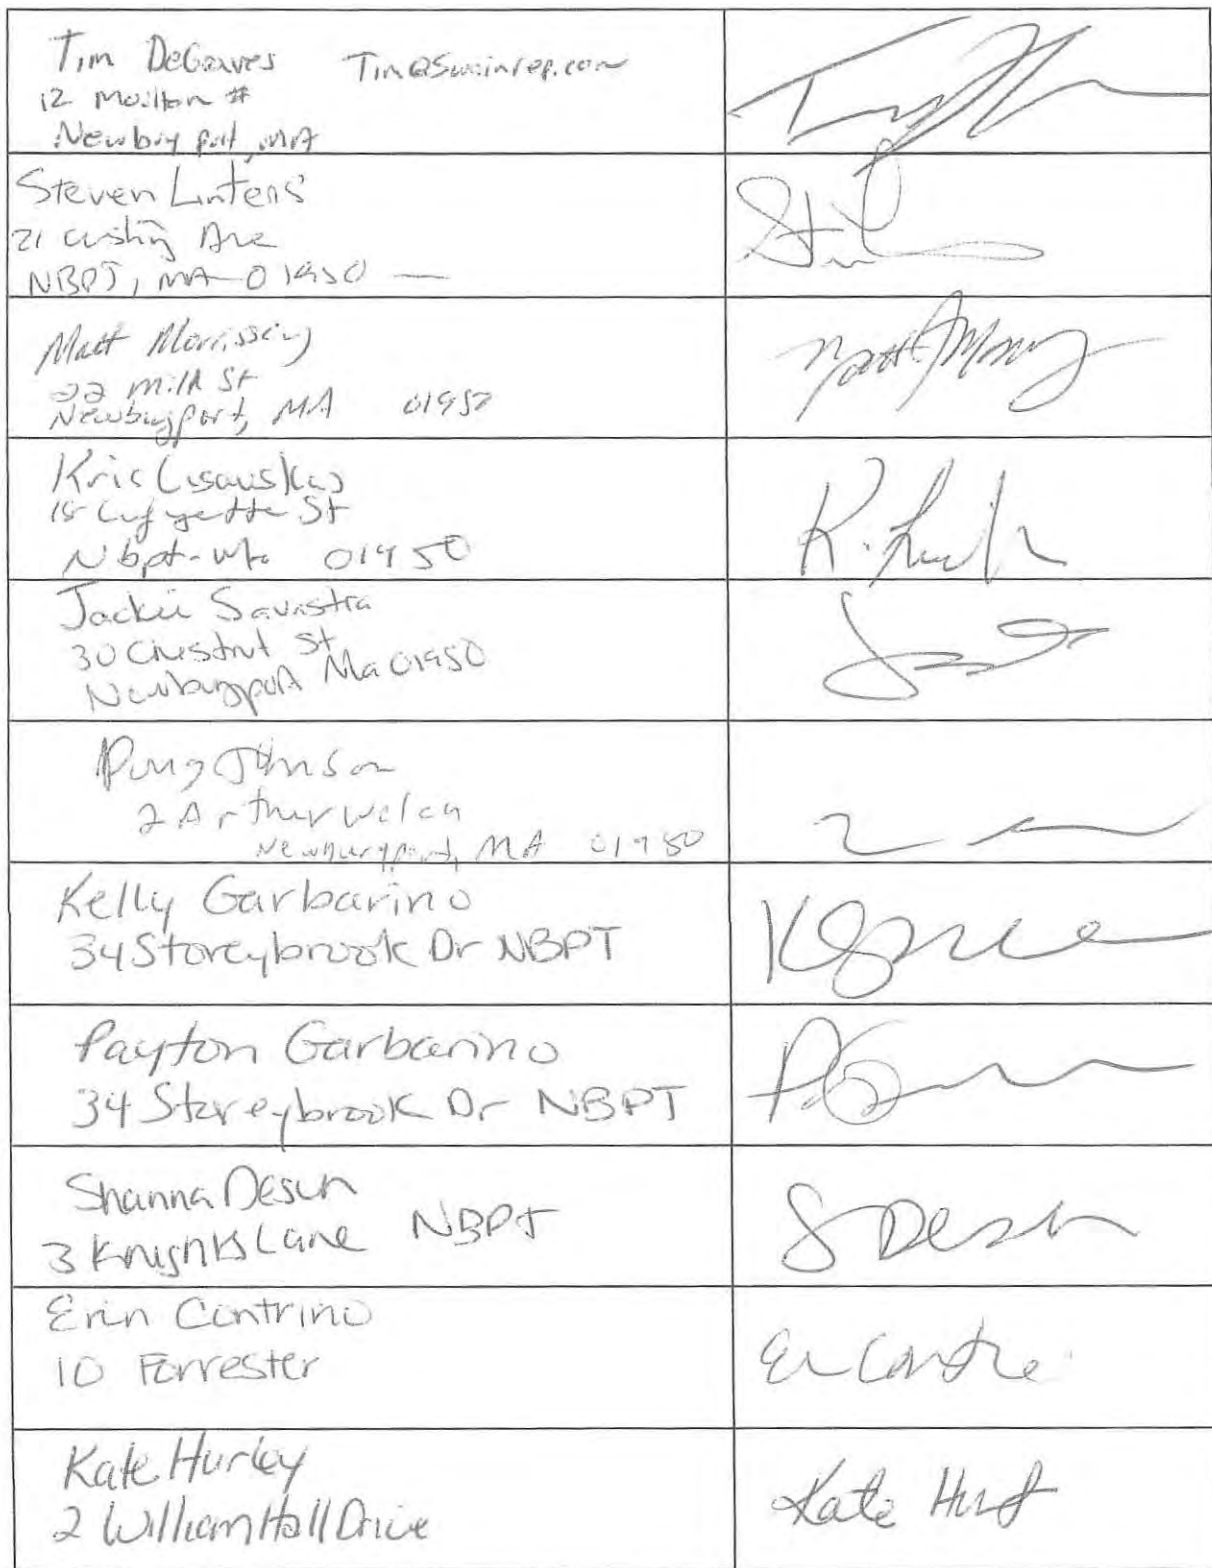 Tim DeGraves Tim@Swainrep.com
12 Moulton #
Newburyport, MA
Steven Lintens
21 Cushing Ave
NBPT, MA 01950 —
Matt Morrissey
22 Milk St
Newburyport, MA 01950
Kric Lisauskas
18 Lafayette St
Nbpt-Ma 01950
Jackie Savastra
30 Chestnut St
Newburyport Ma 01950
Doug Johnson
2 Arthur Welch
Newburyport, MA 01950
Kelly Garbarino
34 Storeybrook Dr NBPT
Payton Garbarino
34 Storeybrook Dr NBPT
Shanna Desun
S Desun
3 Knights Lane NBPT
Erin Contrino
10 Forrester
Kate Hurley
Kate Hurl
2 William Hall Drive